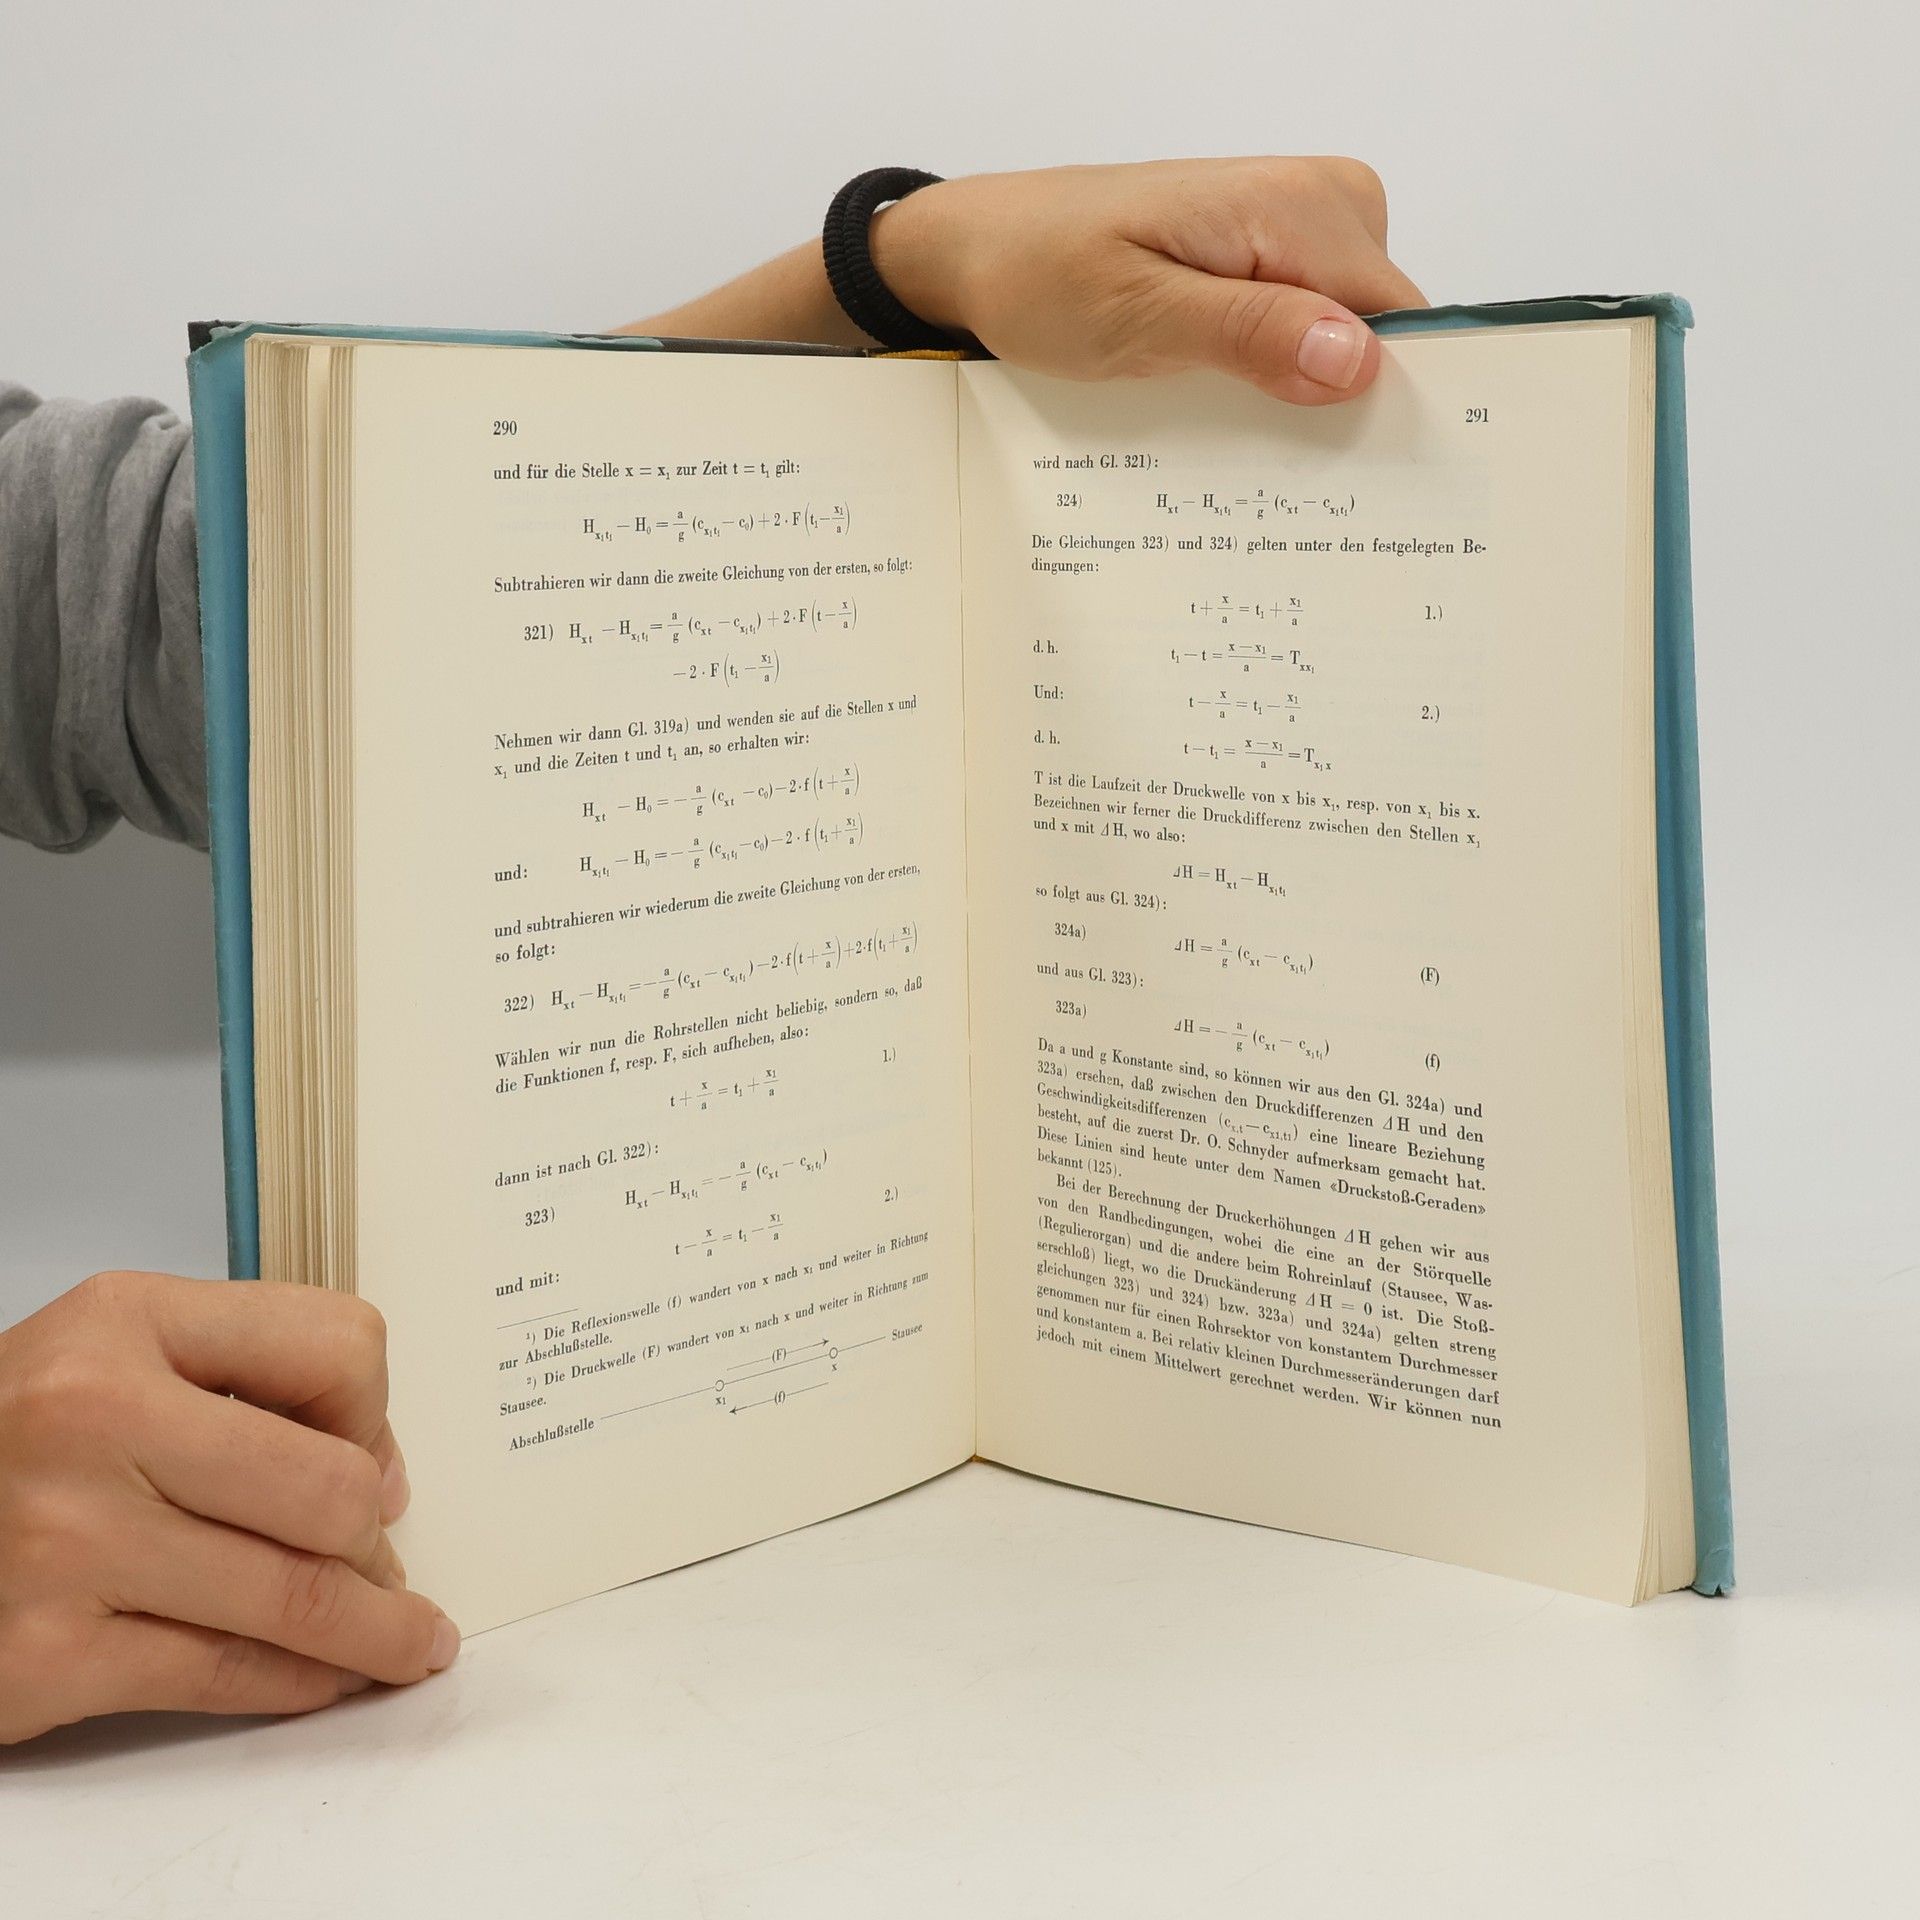 290
und für die Stelle x = x₁ zur Zeit t = t₁ gilt:
H_{x₁t₁} − H₀ = a/g (c_{x₁t₁} − c₀) + 2 · F (t₁ − x₁/a)
Subtrahieren wir dann die zweite Gleichung von der ersten, so folgt:
321) H_{xt} − H_{x₁t₁} = a/g (c_{xt} − c_{x₁t₁}) + 2 · F (t − x/a)
− 2 · F (t₁ − x₁/a)
Nehmen wir dann Gl. 319a) und wenden sie auf die Stellen x und
x₁ und die Zeiten t und t₁ an, so erhalten wir:
H_{xt} − H₀ = − a/g (c_{xt} − c₀) − 2 · f (t + x/a)
und: H_{x₁t₁} − H₀ = − a/g (c_{x₁t₁} − c₀) − 2 · f (t₁ + x₁/a)
und subtrahieren wir wiederum die zweite Gleichung von der ersten,
so folgt:
322) H_{xt} − H_{x₁t₁} = − a/g (c_{xt} − c_{x₁t₁}) − 2 · f (t + x/a) + 2 · f (t₁ + x₁/a)
Wählen wir nun die Rohrstellen nicht beliebig, sondern so, daß
die Funktionen f, resp. F, sich aufheben, also:
t + x/a = t₁ + x₁/a 1.)
dann ist nach Gl. 322):
323) H_{xt} − H_{x₁t₁} = − a/g (c_{xt} − c_{x₁t₁})
und mit: t − x/a = t₁ − x₁/a 2.)
¹) Die Reflexionswelle (f) wandert von x nach x₁ und weiter in Richtung
zur Abschlußstelle.
²) Die Druckwelle (F) wandert von x₁ nach x und weiter in Richtung zum
Stausee.
Abschlußstelle x₁ (F) (f) x Stausee
291
wird nach Gl. 321):
324) H_{xt} − H_{x₁t₁} = a/g (c_{xt} − c_{x₁t₁})
Die Gleichungen 323) und 324) gelten unter den festgelegten Be-
dingungen:
t + x/a = t₁ + x₁/a 1.)
d. h. t₁ − t = (x − x₁)/a = T_{xx₁}
Und: t − x/a = t₁ − x₁/a 2.)
d. h. t − t₁ = (x − x₁)/a = T_{x₁x}
T ist die Laufzeit der Druckwelle von x bis x₁, resp. von x₁ bis x.
Bezeichnen wir ferner die Druckdifferenz zwischen den Stellen x₁
und x mit ΔH, wo also:
ΔH = H_{xt} − H_{x₁t₁}
so folgt aus Gl. 324):
324a) ΔH = a/g (c_{xt} − c_{x₁t₁}) (F)
und aus Gl. 323):
323a) ΔH = − a/g (c_{xt} − c_{x₁t₁}) (f)
Da a und g Konstante sind, so können wir aus den Gl. 324a) und
323a) ersehen, daß zwischen den Druckdifferenzen ΔH und den
Geschwindigkeitsdifferenzen (c_{x,t} − c_{x1,t1}) eine lineare Beziehung
besteht, auf die zuerst Dr. O. Schnyder aufmerksam gemacht hat.
Diese Linien sind heute unter dem Namen «Druckstoß-Geraden»
bekannt (125).
Bei der Berechnung der Druckerhöhungen ΔH gehen wir aus
von den Randbedingungen, wobei die eine an der Störquelle
(Regulierorgan) und die andere beim Rohreinlauf (Stausee, Was-
serschloß) liegt, wo die Druckänderung ΔH = 0 ist. Die Stoß-
gleichungen 323) und 324) bzw. 323a) und 324a) gelten streng
genommen nur für einen Rohrsektor von konstantem Durchmesser
und konstantem a. Bei relativ kleinen Durchmesseränderungen darf
jedoch mit einem Mittelwert gerechnet werden. Wir können nun